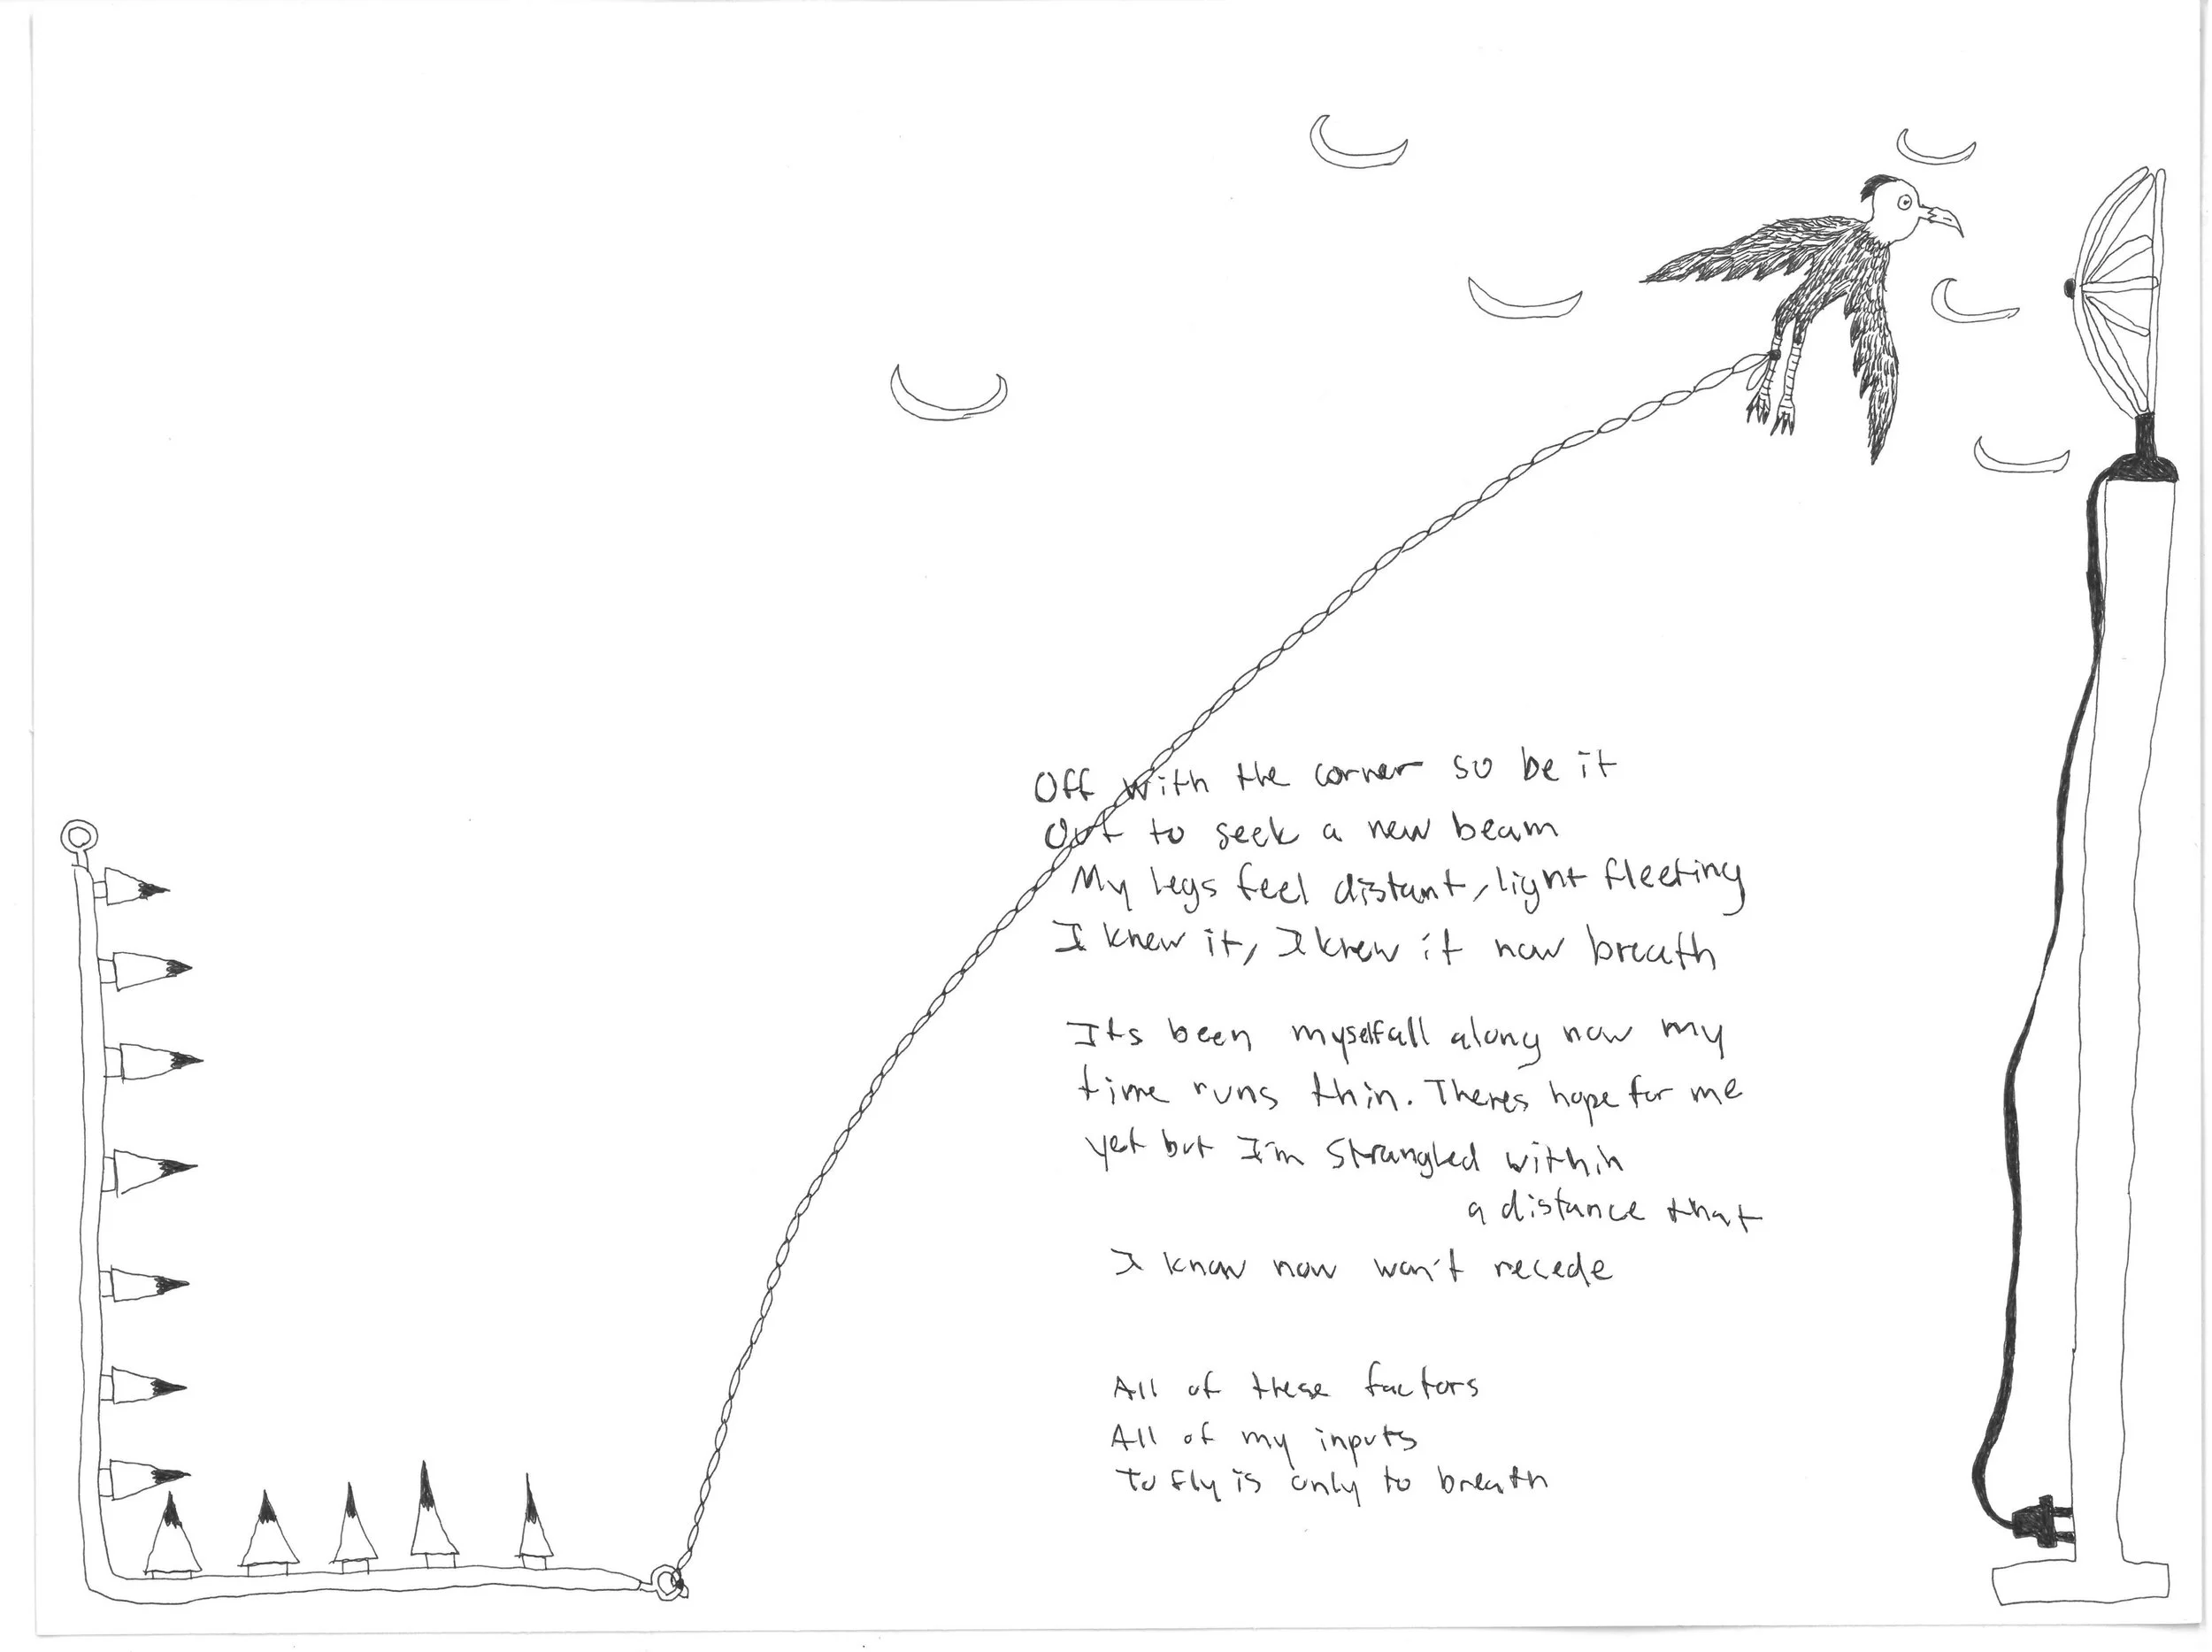 Off with the corner so be it
Out to seek a new beam
My legs feel distant, light fleeting
I knew it, I knew it now breath
Its been myself all along now my
time runs thin. Theres hope for me
yet but I'm strangled within
a distance that
I know now won't recede
All of these factors
All of my inputs
To fly is only to breath